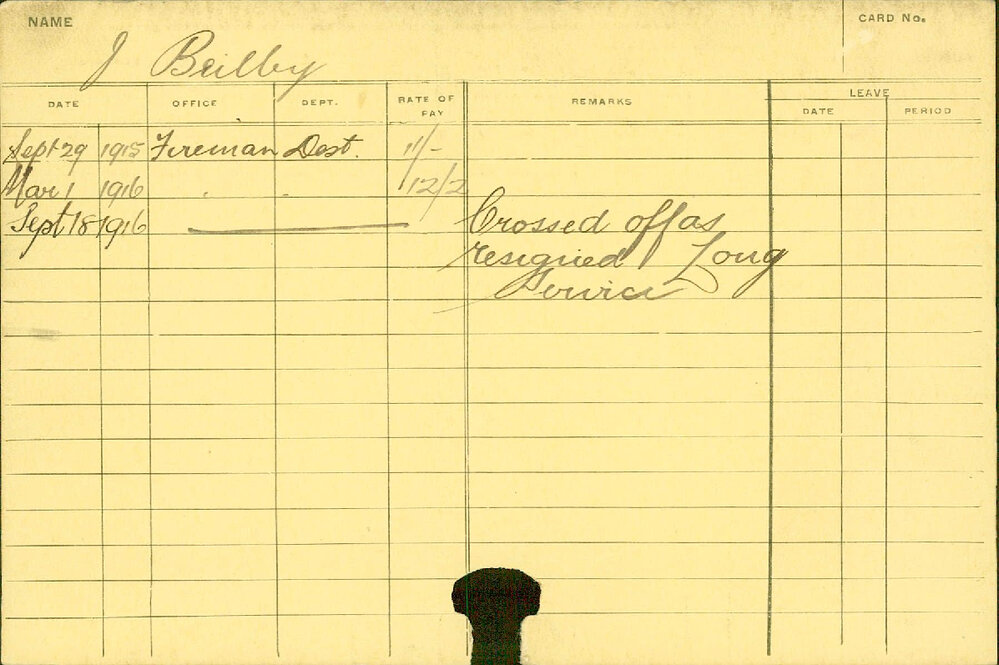 NAME
CARD No.
J Beilby
DATE OFFICE DEPT. RATE OF PAY REMARKS LEAVE
DATE PERIOD
Sept 29 1915 Fireman Dest. 11/-
Mar 1 1916 " " 12/2
Sept 18 1916 Crossed off as
resigned Long
Service